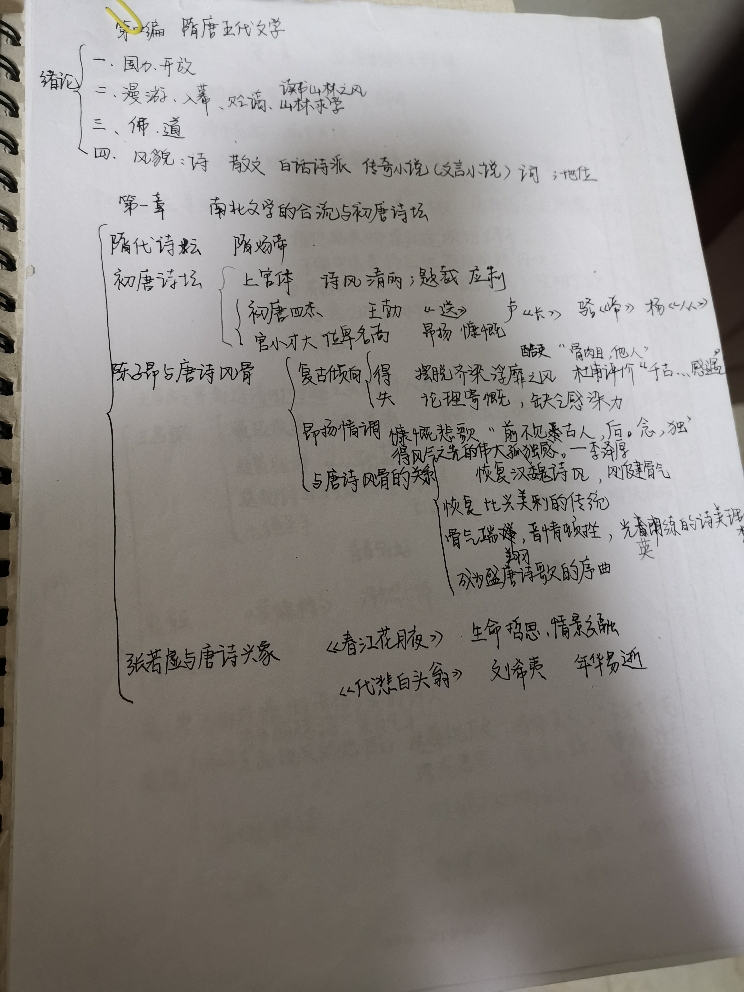 第 编 隋唐五代文学
绪论
一. 国力、开放
二. 漫游、入幕、贬谪、读书山林之风
山林求学
三、佛、道
四. 风貌:诗 散文 白话诗派 传奇小说(文言小说)词;地位
第一章 南北文学的合流与初唐诗坛
隋代诗坛 隋炀帝
初唐诗坛 上官体 诗风清丽;题裁 应制
初唐四杰 王勃《送》 卢《长》 骆《 》 杨《从》
官小才大 位卑名高 昂扬 慷慨
"骨肉且, 他人"
陈子昂与唐诗风骨 复古倾向 得 摆脱齐梁浮靡之风 杜甫评价"千古...感遇"
失 论理寄慨,缺乏感染力
昂扬情调 慷慨悲歌"前不见古人,后。念,独"
得风气之先的伟大孤独感。—李泽厚
与唐诗风骨的关系 恢复汉魏诗风,风骨建骨气
恢复比兴美刺的传统
骨气端翔,音情顿挫,光英朗练的诗美理
成为盛唐诗歌的序曲
张若虚与唐诗兴象 《春江花月夜》 生命哲思、情景交融
《代悲白头翁》 刘希夷 年华易逝